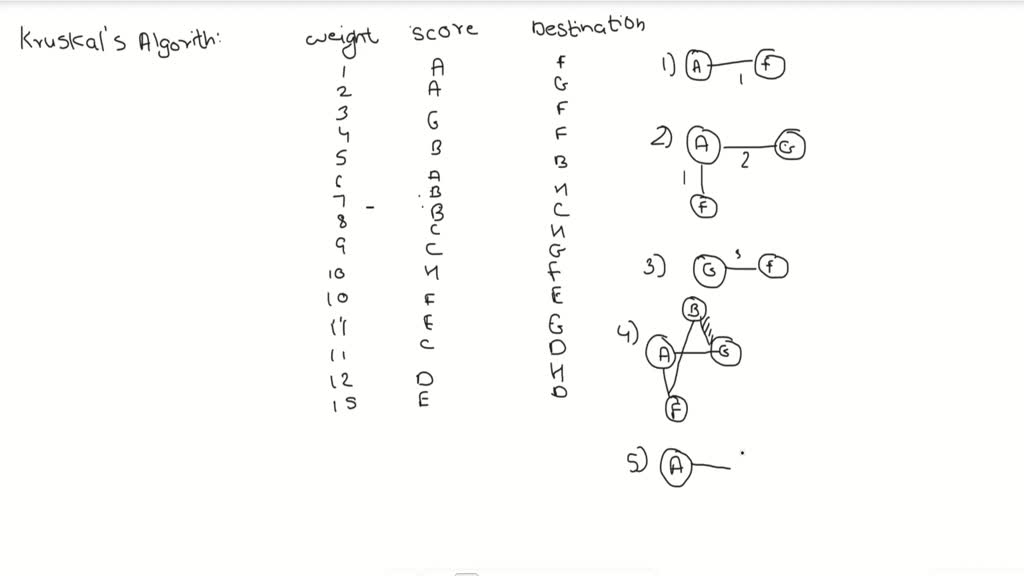 Kruskal's Algorith:
weight score Destination
1 A f
2 A G
3 G F
4 B F
5 A B
6 B H
7 - B C
8 C H
9 C G
10 H F
10 F E
11 E G
11 C D
12 D H
15 E D
1) A 1 f
2) A 2 G
1
F
3) G 3 f
4) B
A G
F
5) A